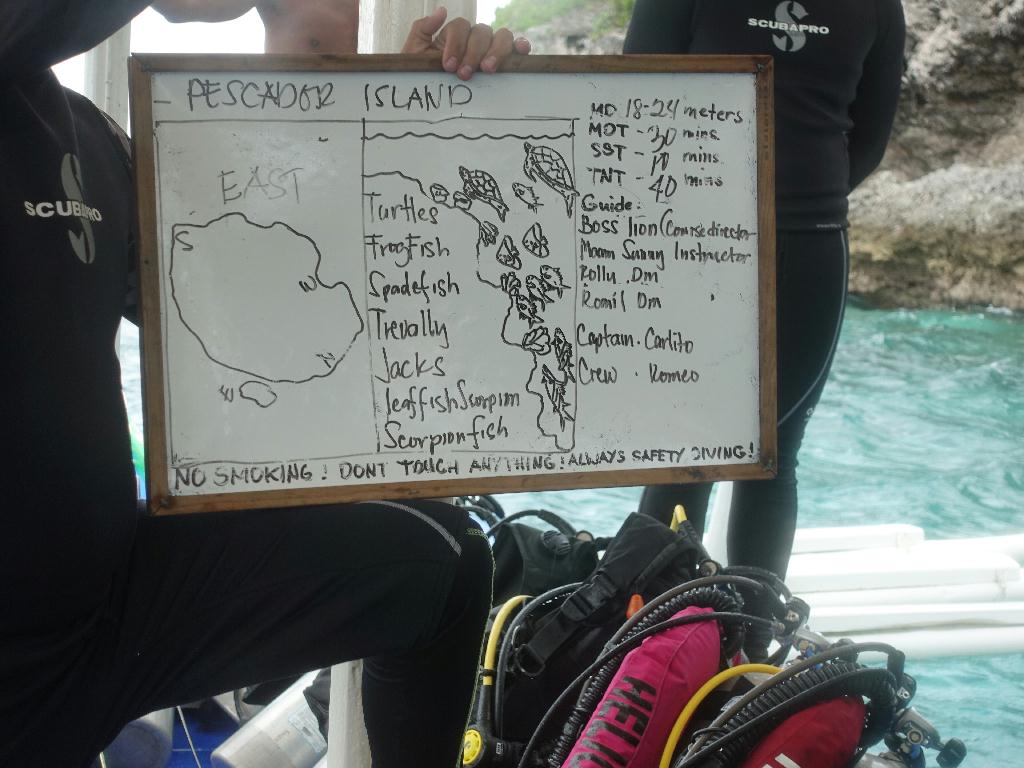 PESCADOR ISLAND
EAST
S
W
N
E
Turtles
FrogFish
Spadefish
Trevally
Jacks
leaffish Scorpion
Scorpionfish
MD 18-24 meters
MDT - 30 mins
SST - 10 mins
TNT - 40 mins
Guide:
Boss lion (Coursedirector
Maam Sunny Instructor
Rolly Dm
Romil Dm
Captain. Carlito
Crew . Romeo
NO SMOKING! DONT TOUCH ANYTHING! ALWAYS SAFETY DIVING!
SCUBAPRO
SCUBAPRO